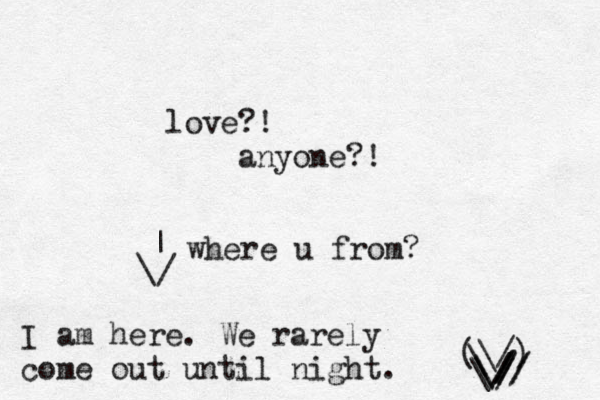 love?!
anyone?!
| where u from?
\/
I am here. We rarely
come out until night.
(\\//)